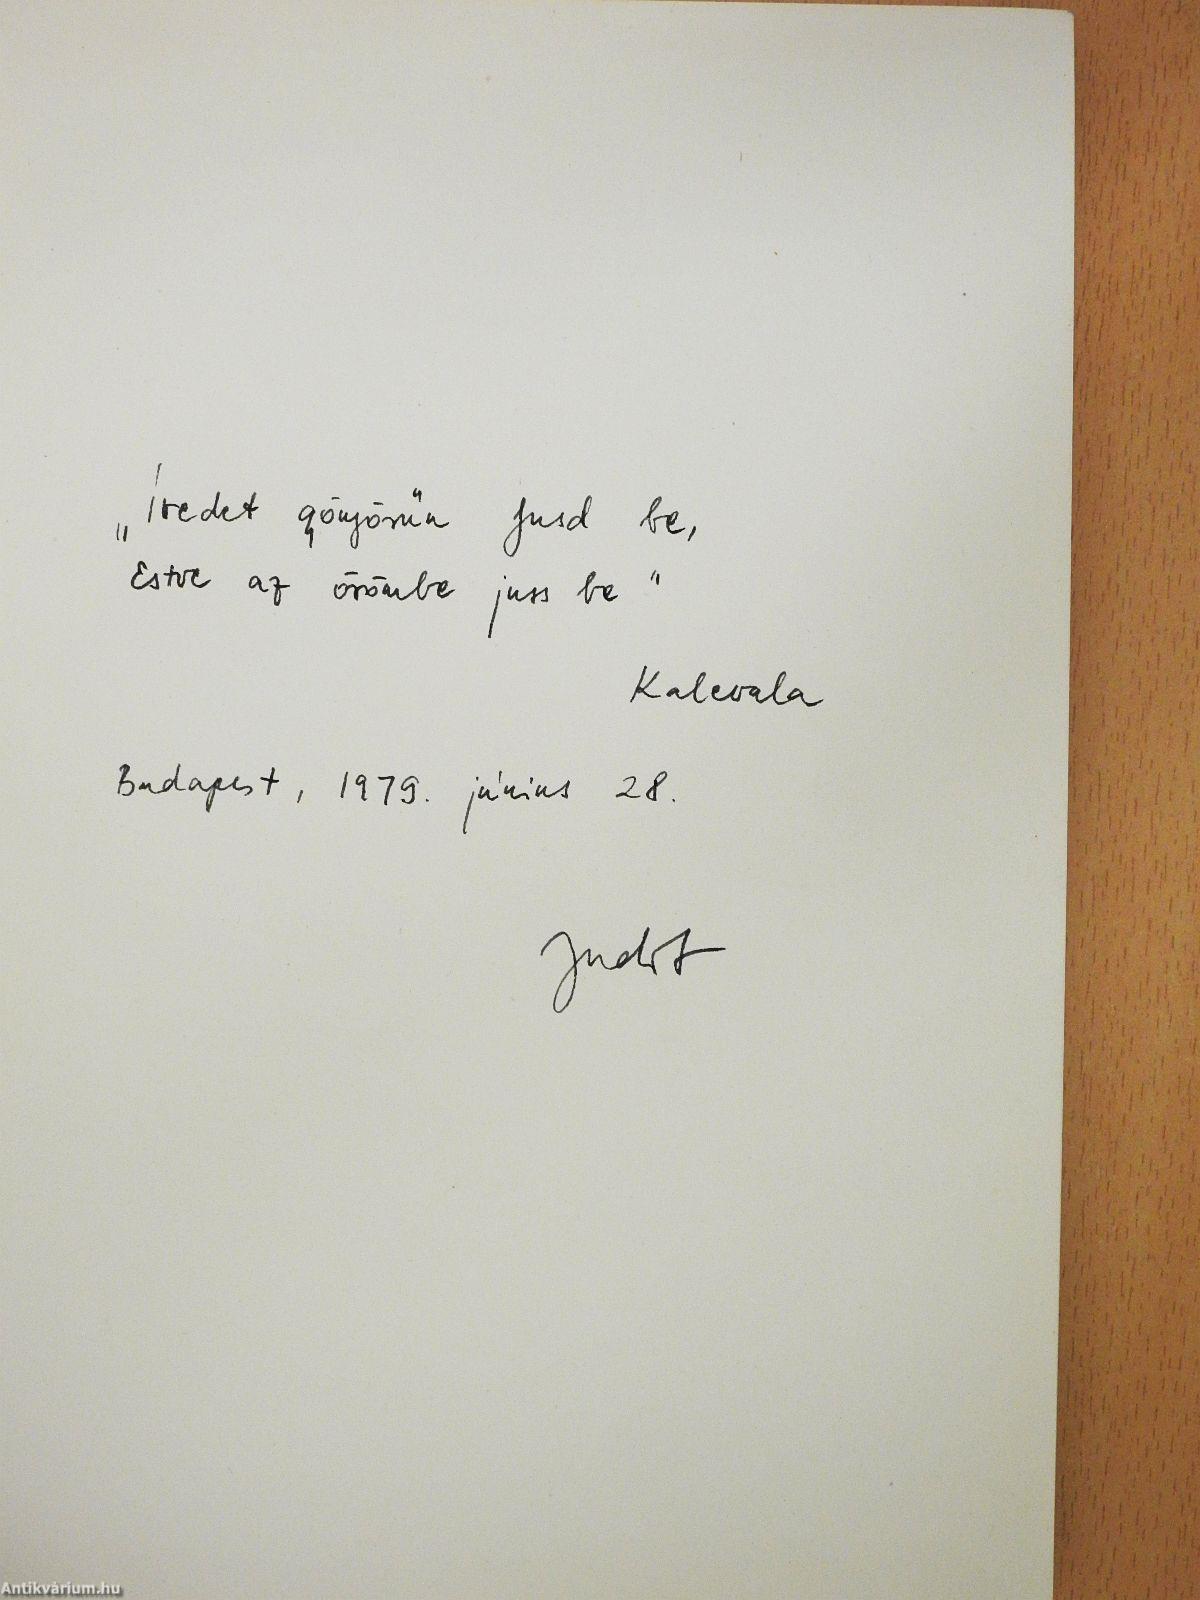 „Ívedet gyönyörűn fusd be,
Estve az örömbe juss be"
Kalevala
Budapest, 1979. június 28.
Judit
Antikvárium.hu